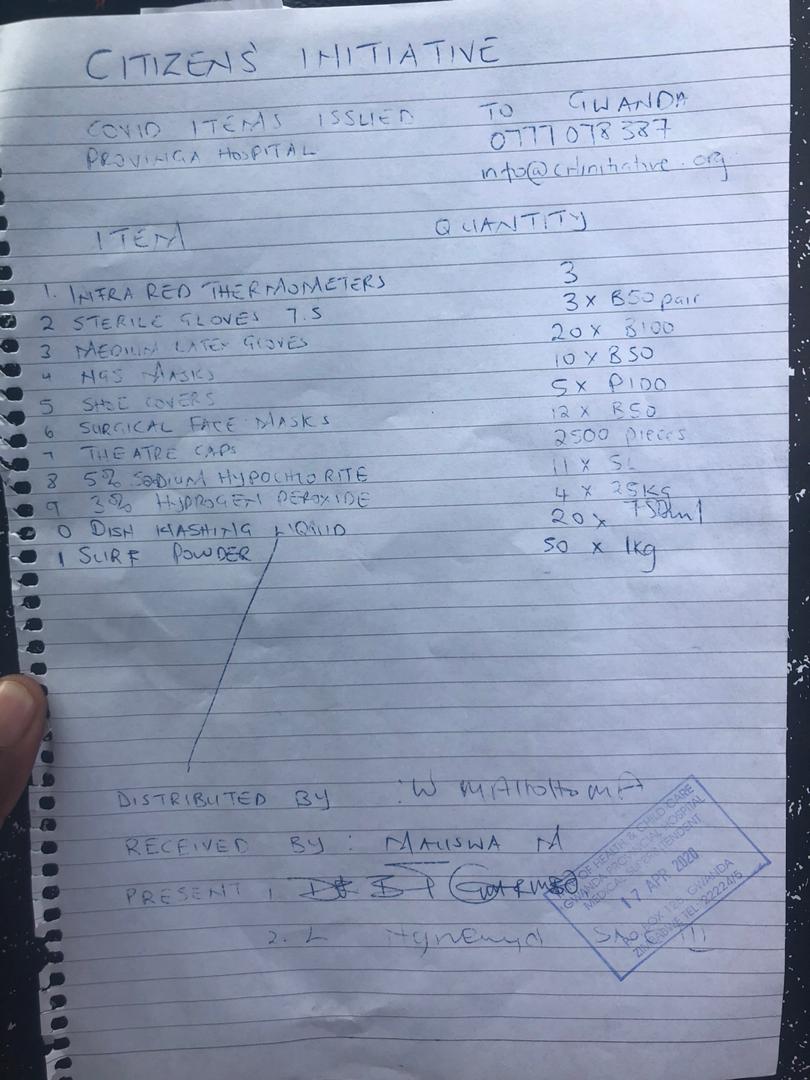 CITIZENS' INITIATIVE
COVID ITEMS ISSUED TO GWANDA
PROVINCIAL HOSPITAL 0777 078 387
info@citinitiative.org
ITEM QUANTITY
1. INFRA RED THERMOMETERS 3
2 STERILE GLOVES 7.5 3 x B50 pair
3 MEDIUM LATEX GLOVES 20 x B100
4 N95 MASKS 10 x B50
5 SHOE COVERS 5 x P100
6 SURGICAL FACE MASKS 12 x B50
7 THEATRE CAPS 2500 pieces
8 5% SODIUM HYPOCHLORITE 11 x 5L
9 3% HYDROGEN PEROXIDE 4 x 25KG
0 DISH WASHING LIQUID 20 x 750ml
1 SURF POWDER 50 x 1kg
DISTRIBUTED BY : W
RECEIVED BY : MALISWA M
PRESENT 1.
2. L
OF HEALTH & CHILD CARE
GWANDA PROVINCIAL HOSPITAL
MEDICAL SUPERINTENDENT
17 APR 2020
BOX 125, GWANDA
ZIMBABWE TEL: 22224/5